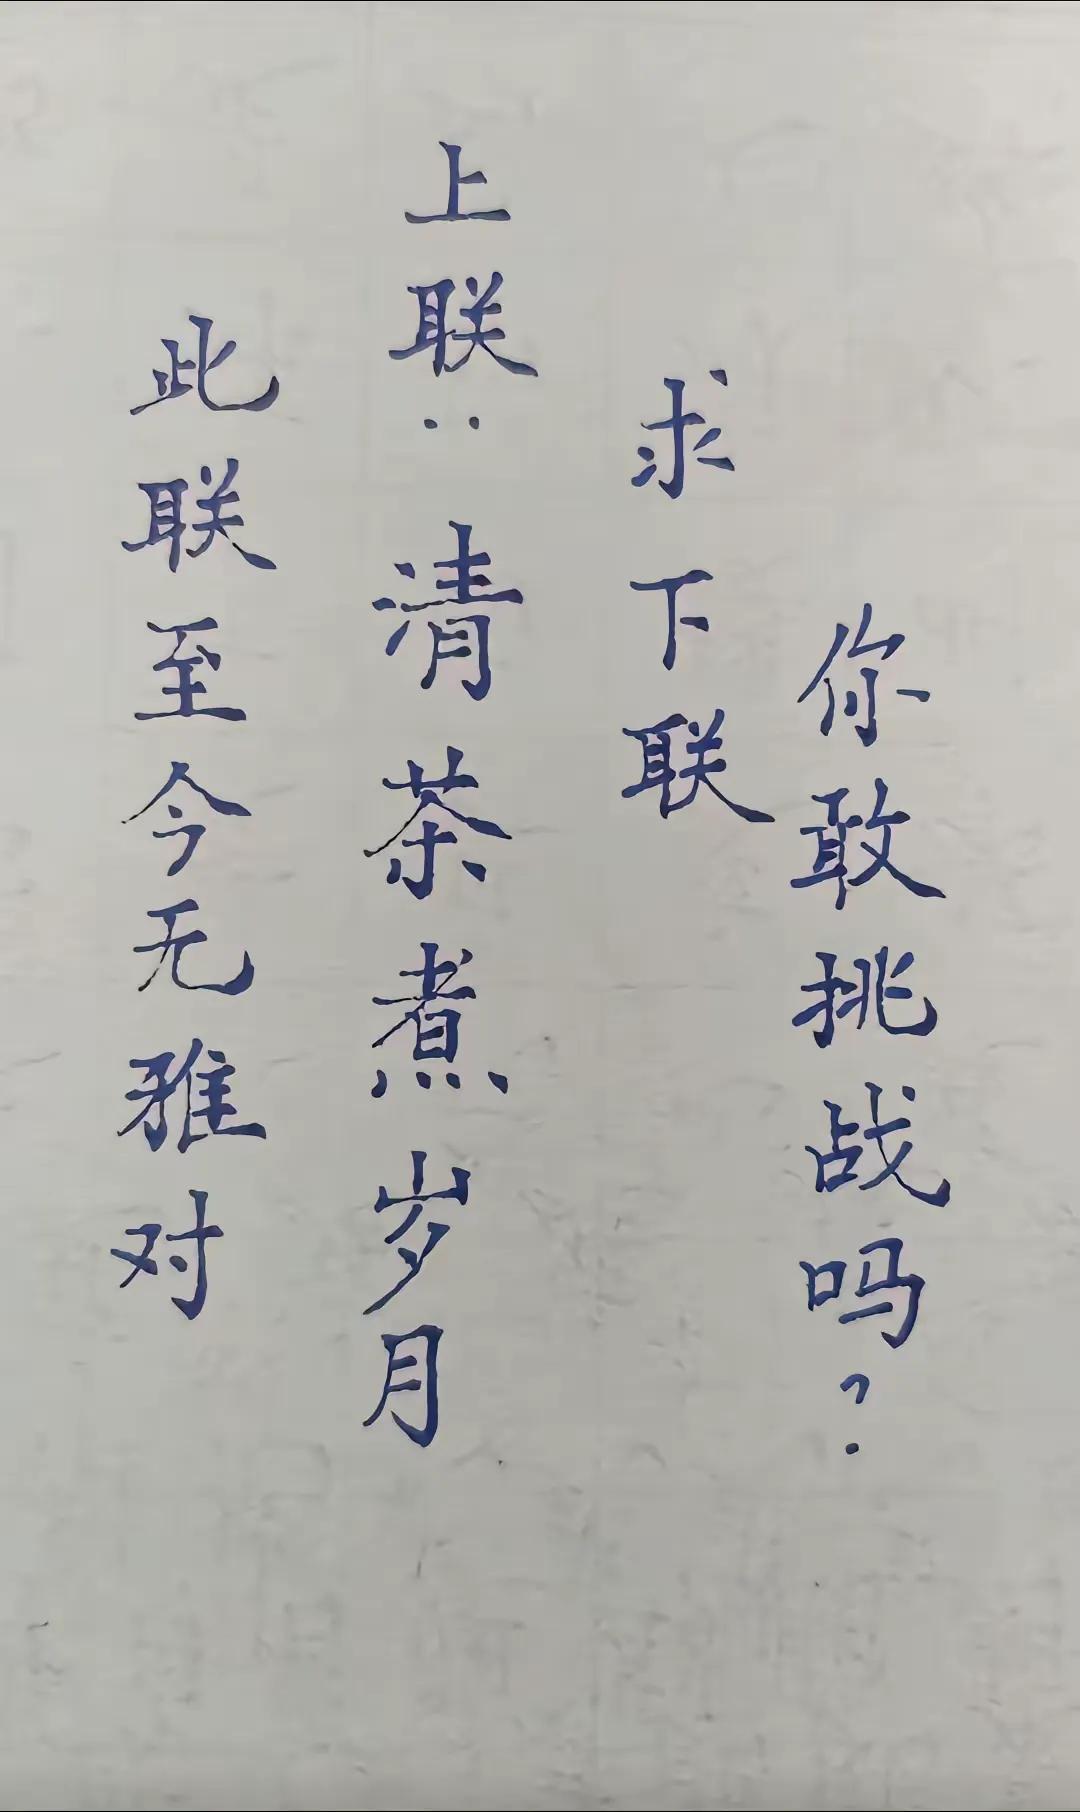 此联至今无雅对
上联：清茶煮岁月
求下联
你敢挑战吗？